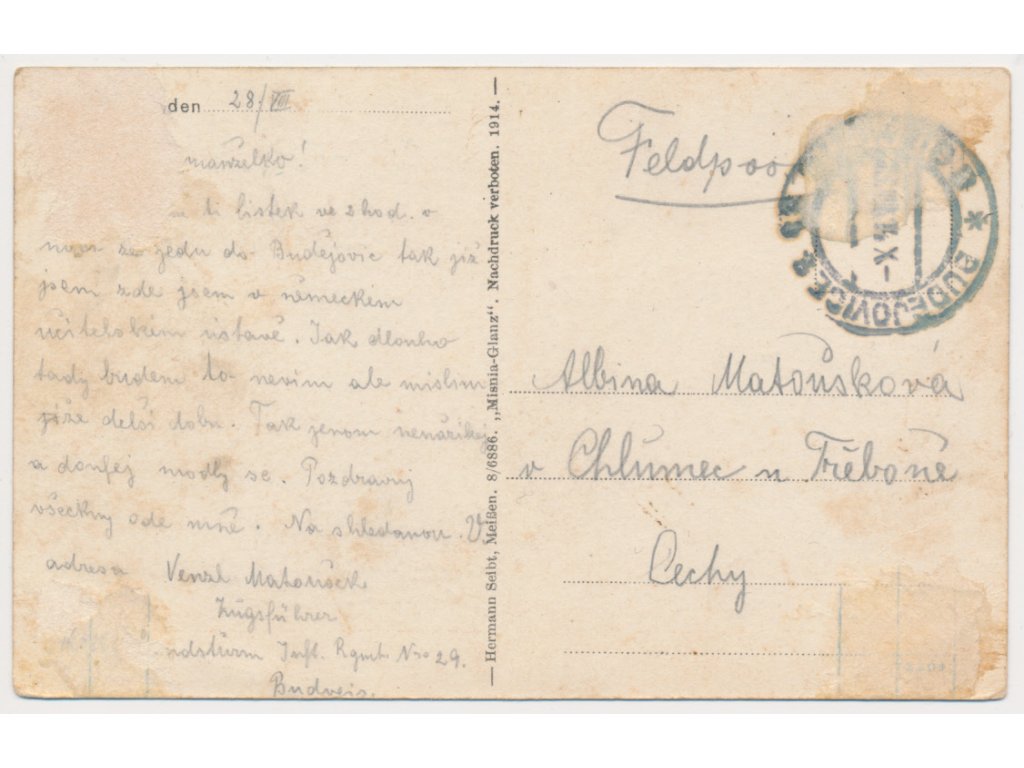 den 28/VII
manželko!
ti listek ve 2 hod. v
jedu do Budějovic tak již
jsem zde jsem v německém
učitelském ústavě. Jak dlouho
tady budem to nevim ale mislim
delší dobu. Tak jenom nenařikej
a doufej modly se. Pozdravuj
všeckny ode mně. Na shledanou. V
adresa Venzl Matoušek
Zugsführer
ndsturm Inft. Rgmt. Nro 29.
Budveis.
— Hermann Seibt, Meißen. 8/6886. „Misnia-Glanz“. Nachdruck verboten. 1914. —
Feldpos
BUDĚJOVICE
Albina Matoušková
v Chlumec u Třeboně
Čechy